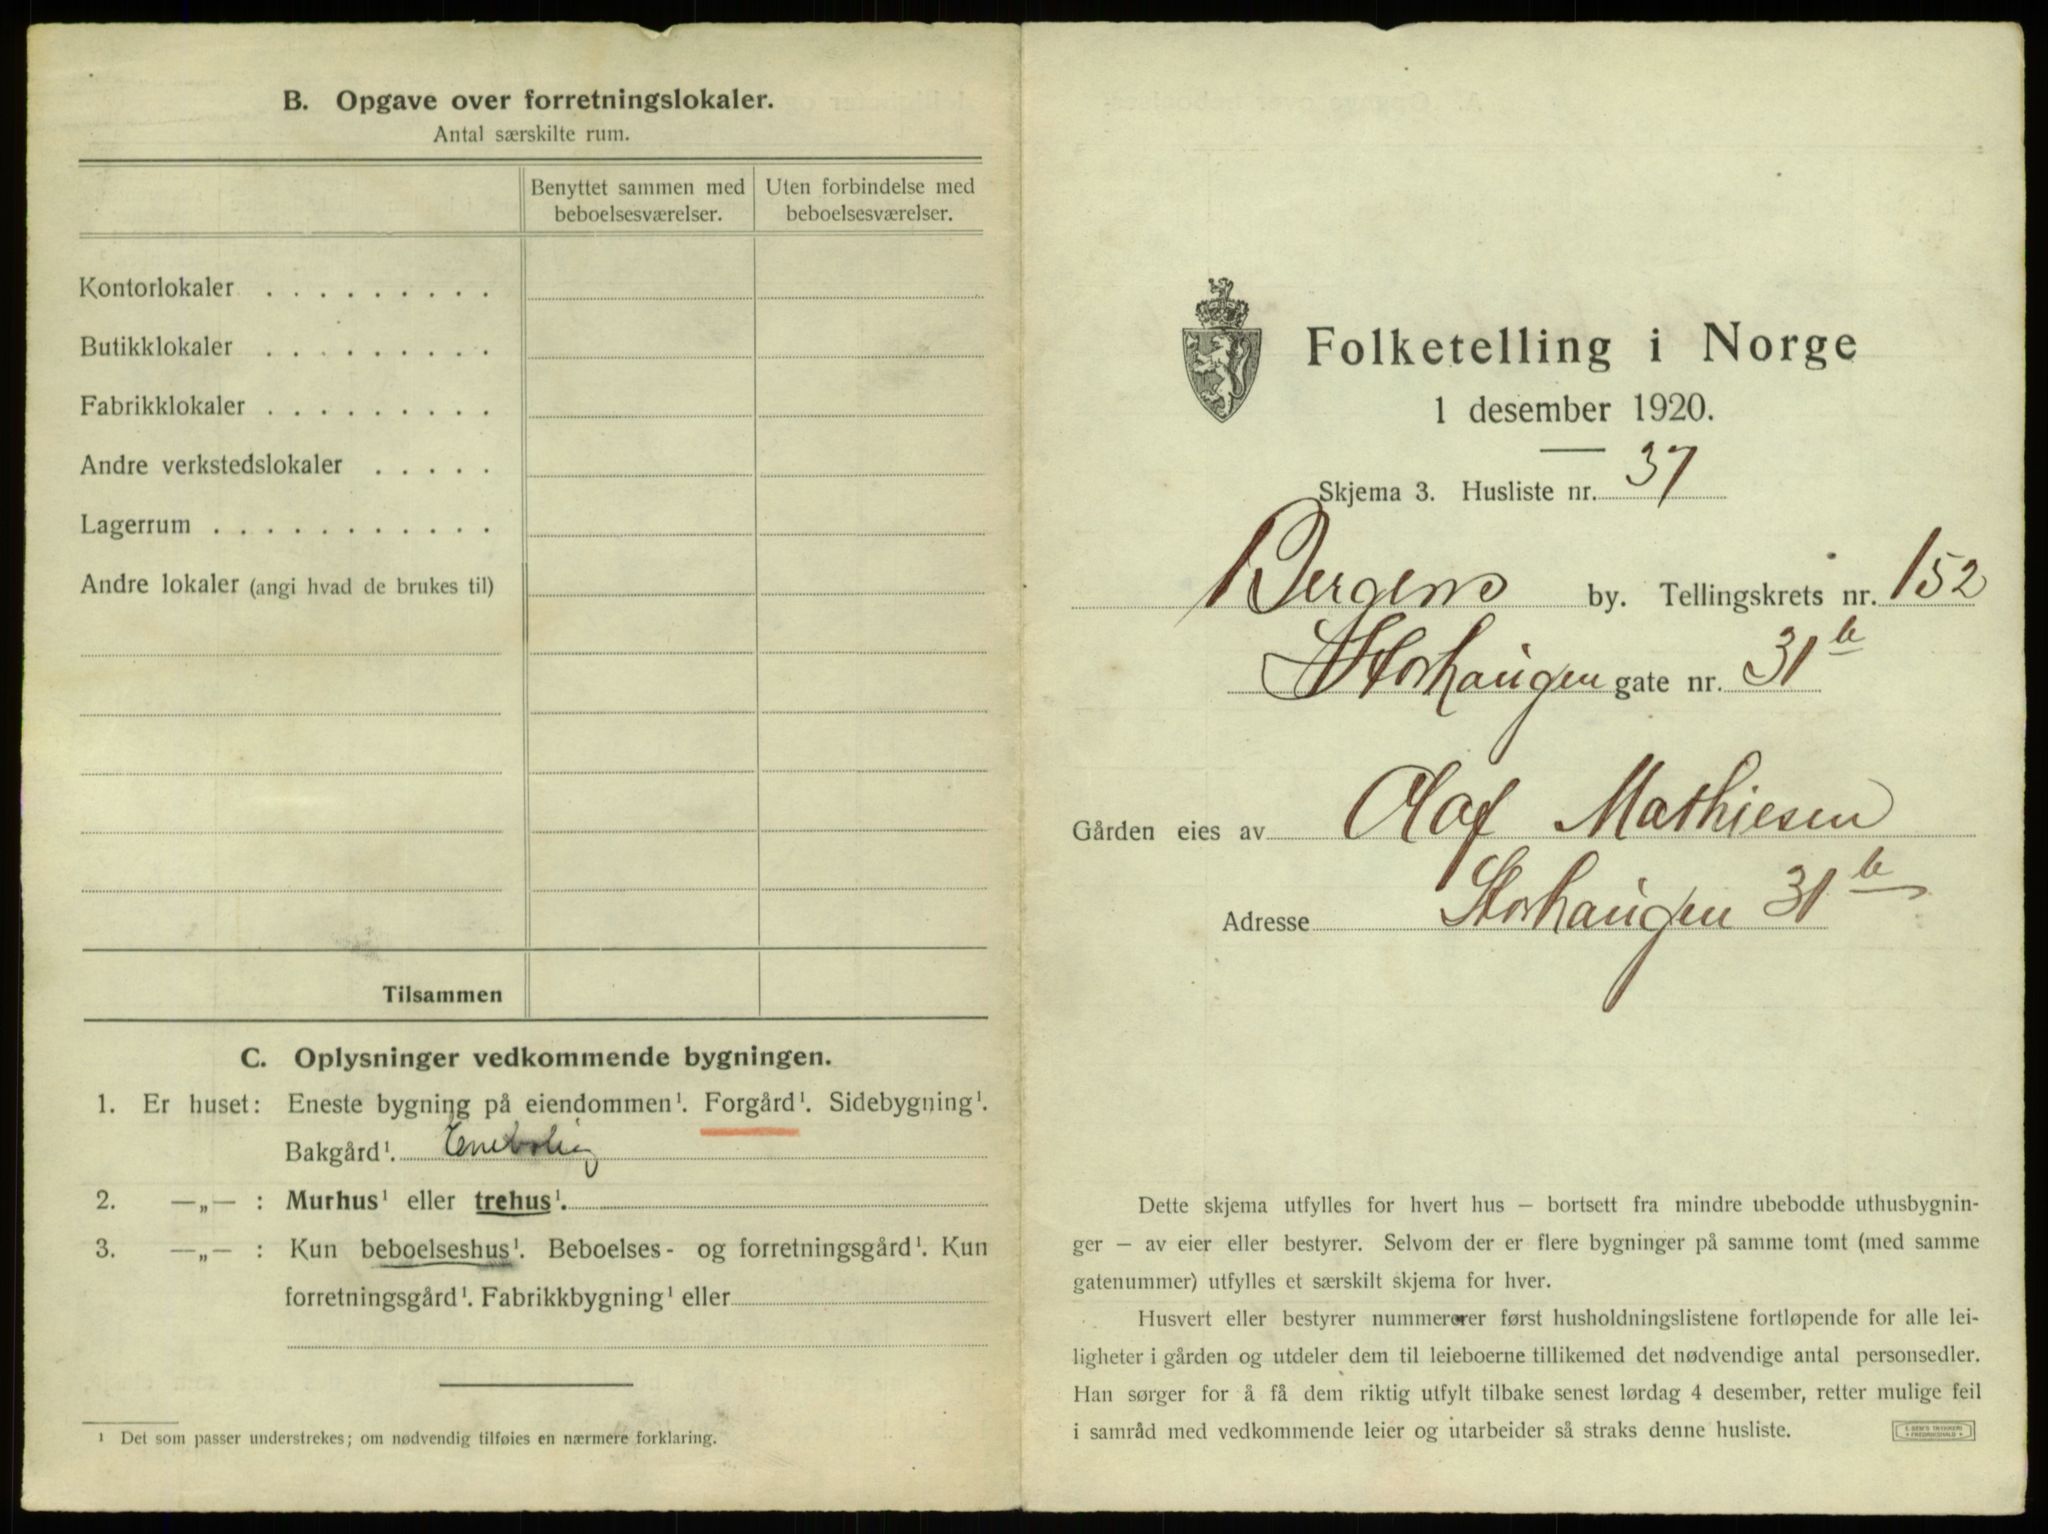 B. Opgave over forretningslokaler.
Antal særskilte rum.
Benyttet sammen med beboelsesværelser.
Uten forbindelse med beboelsesværelser.
Kontorlokaler . . . . . . . . .
Butikklokaler . . . . . . . . .
Fabrikklokaler . . . . . . . . .
Andre verkstedslokaler . . . . .
Lagerrum . . . . . . . . . . .
Andre lokaler (angi hvad de brukes til)
Tilsammen
C. Oplysninger vedkommende bygningen.
1. Er huset: Eneste bygning på eiendommen¹. Forgård¹. Sidebygning¹.
Bakgård¹. Enebolig
2. —„— : Murhus¹ eller trehus¹.
3. —„— : Kun beboelseshus¹. Beboelses- og forretningsgård¹. Kun
forretningsgård¹. Fabrikkbygning¹ eller
¹ Det som passer understrekes; om nødvendig tilføies en nærmere forklaring.
Folketelling i Norge
1 desember 1920.
Skjema 3. Husliste nr. 37
Bergens by. Tellingskrets nr. 152
Storhaugen gate nr. 31b
Gården eies av Olaf Mathiesen
Adresse Storhaugen 31b
Dette skjema utfylles for hvert hus — bortsett fra mindre ubebodde uthusbygnin-
ger — av eier eller bestyrer. Selvom der er flere bygninger på samme tomt (med samme
gatenummer) utfylles et særskilt skjema for hver.
Husvert eller bestyrer nummererer først husholdningslistene fortløpende for alle lei-
ligheter i gården og utdeler dem til leieboerne tillikemed det nødvendige antal personsedler.
Han sørger for å få dem riktig utfylt tilbake senest lørdag 4 desember, retter mulige feil
i samråd med vedkommende leier og utarbeider så straks denne husliste.